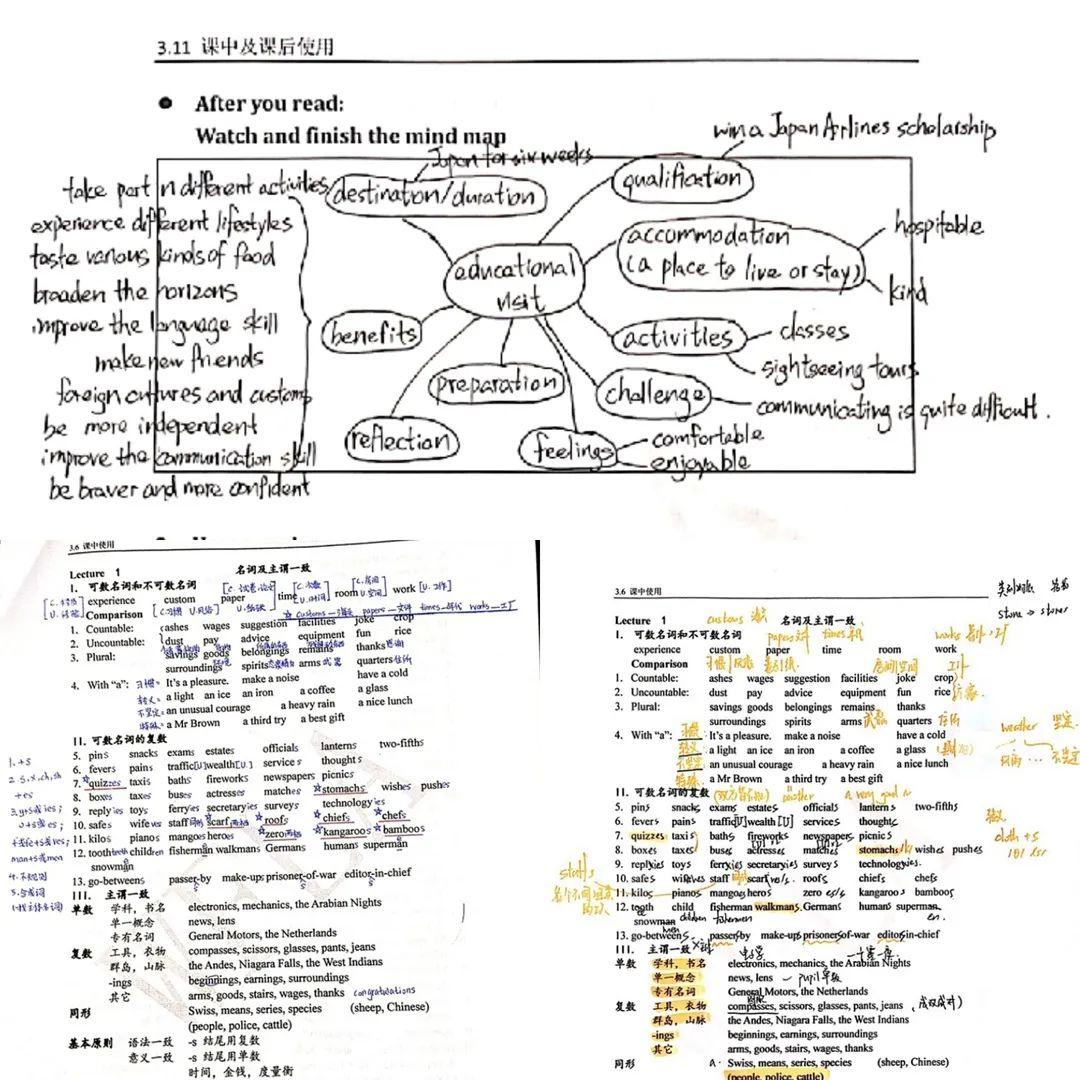 3.11 课中及课后使用
● After you read:
Watch and finish the mind map
win a Japan Airlines scholarship
Japan for six weeks
qualification
take part in different activities
destination/duration
experience different lifestyles
accommodation
(a place to live or stay)
hospitable
kind
taste various kinds of food
educational
visit
broaden the horizons
improve the language skill
benefits
activities
classes
sightseeing tours
make new friends
preparation
challenge
communicating is quite difficult.
foreign cultures and customs
be more independent
reflection
feelings
comfortable
enjoyable
improve the communication skill
be braver and more confident
3.6 课中使用
Lecture 1 名词及主谓一致
I. 可数名词和不可数名词
experience custom paper time room work [U. 工作]
Comparison
☆ customs—海关 papers—文件 times—时代 works—工厂
1. Countable: ashes wages suggestion facilities joke crop
2. Uncountable: dust pay advice equipment fun rice
3. Plural: savings goods belongings remains thanks
surroundings spirits arms 武器 quarters 住所
4. With "a": It's a pleasure. make a noise have a cold
a light an ice an iron a coffee a glass
不坚定= an unusual courage a heavy rain a nice lunch
a Mr Brown a third try a best gift
II. 可数名词的复数
5. pins snacks exams estates officials lanterns two-fifths
6. fevers pains traffic[U]wealth[U] services thoughts
7. ☆quizzes taxis baths fireworks newspapers picnics
8. boxes taxes buses actresses matches ☆stomachs wishes pushes
9. replyies toys ferryies secretaryies surveys technologyies
10. safes wifeves staff scarf ☆roofs ☆chiefs ☆chefs
11. kilos pianos mangoes heroes ☆zero ☆kangaroos ☆bamboos
12. tooth teeth children fisherman walkmans Germans humans superman
snowman
13. go-betweens passer-by make-ups prisoner-of-war editor-in-chief
III. 主谓一致
单数 学科，书名 electronics, mechanics, the Arabian Nights
单一概念 news, lens
专有名词 General Motors, the Netherlands
复数 工具，衣物 compasses, scissors, glasses, pants, jeans
群岛，山脉 the Andes, Niagara Falls, the West Indians
-ings beginnings, earnings, surroundings
其它 arms, goods, stairs, wages, thanks congratulations
同形 Swiss, means, series, species (sheep, Chinese)
(people, police, cattle)
基本原则 语法一致 -s 结尾用复数
意义一致 -s 结尾用单数
时间，金钱，度量衡
1. +s
2. s, x, ch, sh
+es
man+s或men
4. 不规则
3.6 课中使用
store → stores
Lecture 1 customs 海关 名词及主谓一致
I. 可数名词和不可数名词
experience custom paper time room work
Comparison
1. Countable: ashes wages suggestion facilities joke crop
2. Uncountable: dust pay advice equipment fun rice
3. Plural: savings goods belongings remains thanks
surroundings spirits arms 武器 quarters 住所
4. With "a": It's a pleasure. make a noise have a cold
a light an ice an iron a coffee a glass
不坚定 an unusual courage a heavy rain a nice lunch
a Mr Brown a third try a best gift
weather
II. 可数名词的复数
5. pins snacks exams estates officials lanterns two-fifths
6. fevers pains traffic[U]wealth[U] services thoughts
7. quizzes taxis baths fireworks newspapers picnics
8. boxes taxes buses actresses matches stomachs wishes pushes
9. replyies toys ferryies secretaryies surveys technologies
10. safes wifeves staff scarf roofs chiefs chefs
11. kilos pianos mangos heros zero kangaroos bamboos
12. tooth child fisherman walkmans Germans humans superman
snowman children fishermen
13. go-betweens passer-by make-ups prisoners-of-war editors-in-chief
staffs
cloth +s
III. 主谓一致
单数 学科，书名 electronics, mechanics, the Arabian Nights
单一概念 news, lens — pupil 单数
专有名词 General Motors, the Netherlands
复数 工具，衣物 compasses, scissors, glasses, pants, jeans
群岛，山脉 the Andes, Niagara Falls, the West Indians
-ings beginnings, earnings, surroundings
其它 arms, goods, stairs, wages, thanks
同形 Swiss, means, series, species (sheep, Chinese)
(people, police, cattle)